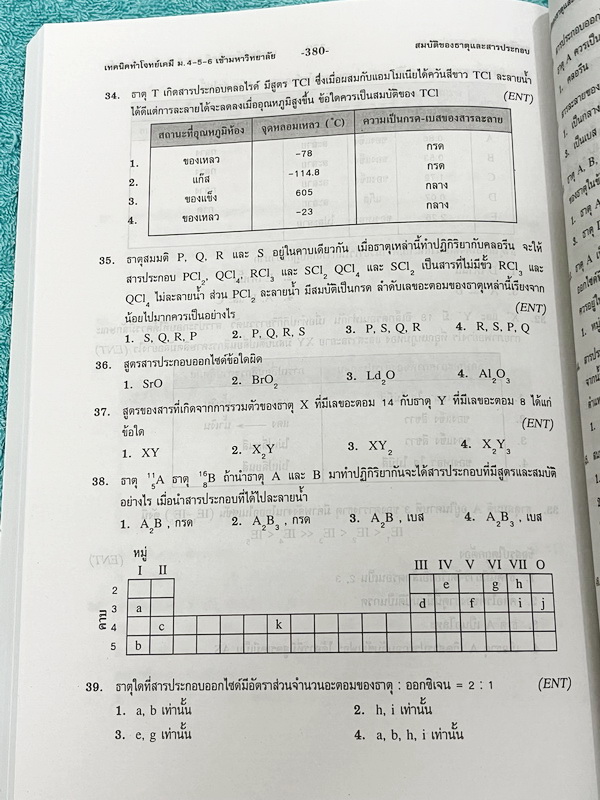 เทคนิคทำโจทย์เคมี ม.4-5-6 เข้ามหาวิทยาลัย -380- สมบัติของธาตุและสารประกอบ
34. ธาตุ T เกิดสารประกอบคลอไรด์ มีสูตร TCl ซึ่งเมื่อผสมกับแอมโมเนียได้ควันสีขาว TCl ละลายน้ำ
ได้ดีแต่การละลายได้จะลดลงเมื่ออุณหภูมิสูงขึ้น ข้อใดควรเป็นสมบัติของ TCl (ENT)
สถานะที่อุณหภูมิห้อง จุดหลอมเหลว (°C) ความเป็นกรด-เบสของสารละลาย
1. ของเหลว -78 กรด
2. แก๊ส -114.8 กรด
3. ของแข็ง 605 กลาง
4. ของเหลว -23 กลาง
35. ธาตุสมมติ P, Q, R และ S อยู่ในคาบเดียวกัน เมื่อธาตุเหล่านี้ทำปฏิกิริยากับคลอรีน จะให้
สารประกอบ PCl₂, QCl₄, RCl₃ และ SCl₂ QCl₄ และ SCl₂ เป็นสารที่ไม่มีขั้ว RCl₃ และ
QCl₄ ไม่ละลายน้ำ ส่วน PCl₂ ละลายน้ำ มีสมบัติเป็นกรด ลำดับเลขอะตอมของธาตุเหล่านี้เรียงจาก
น้อยไปมากควรเป็นอย่างไร (ENT)
1. S, Q, R, P 2. P, Q, R, S 3. P, S, Q, R 4. R, S, P, Q
36. สูตรสารประกอบออกไซด์ข้อใดผิด
1. SrO 2. BrO₂ 3. Ld₂O 4. Al₂O₃
37. สูตรของสารที่เกิดจากการรวมตัวของธาตุ X ที่มีเลขอะตอม 14 กับธาตุ Y ที่มีเลขอะตอม 8 ได้แก่
ข้อใด (ENT)
1. XY 2. X₂Y 3. XY₂ 4. X₂Y₃
38. ธาตุ ¹¹₅A ธาตุ ¹⁶₈B ถ้านำธาตุ A และ B มาทำปฏิกิริยากันจะได้สารประกอบที่มีสูตรและสมบัติ
อย่างไร เมื่อนำสารประกอบที่ได้ไปละลายน้ำ
1. A₂B , กรด 2. A₂B₃ , กรด 3. A₂B , เบส 4. A₂B₃ , เบส
หมู่
I II III IV V VI VII O
2 e g h
คาบ 3 a d f i j
4 c k
5 b
39. ธาตุใดที่สารประกอบออกไซด์มีอัตราส่วนจำนวนอะตอมของธาตุ : ออกซิเจน = 2 : 1 (ENT)
1. a, b เท่านั้น 2. h, i เท่านั้น
3. e, g เท่านั้น 4. a, b, h, i เท่านั้น